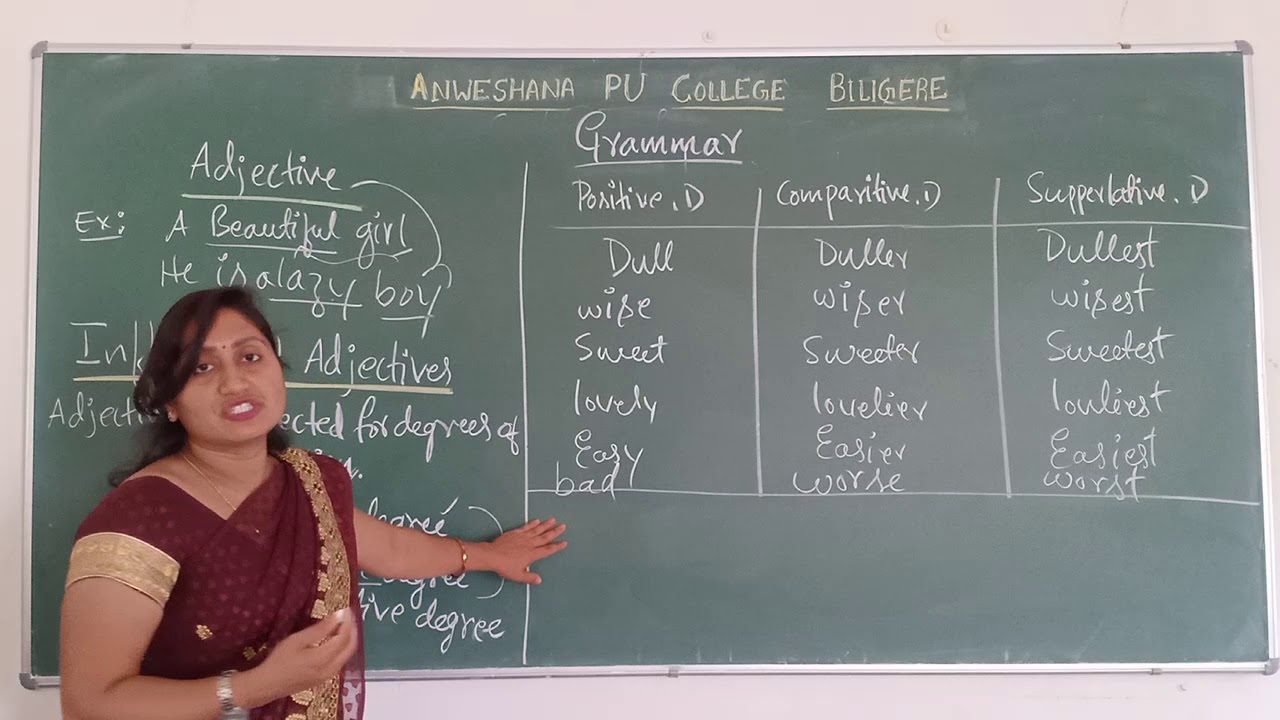 ANWESHANA PU COLLEGE BILIGERE
Grammar
Adjective
Ex: A Beautiful girl
He is a lazy boy
Adjectives
for degrees of
degree
degree
degree
Positive.D Comparitive.D Supperlative.D
Dull Duller Dullest
wise wiser wisest
Sweet Sweeter Sweetest
lovely lovelier lovliest
Easy Easier Easiest
bad worse worst